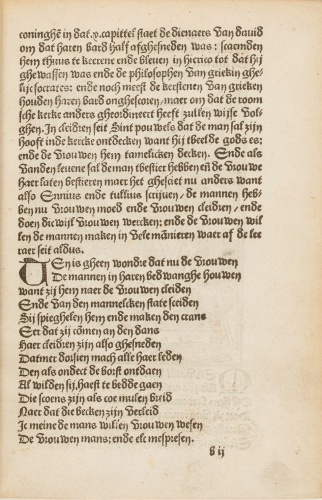 coninghē in dat.x.capittel staet de dienaers van dauid
om dat haren bard half afghesneden was: scaemden
hem thuus te keerene ende bleuen in hierico tot dat hy
ghewassen was ende de philosophen van griekin ghe-
lijc socrates: ende noch meest de kerstenen van grieken
houden haren bard onghescoren/maer om dat de room
sche kerke anders gheordineert heeft zullen wijse vol-
ghen. In cleidren seit Sint pouwels dat de man sal zijn
hooft inde kercke ontdecken want hij tbeelde gods es:
ende de vrouwen hem tamelicken decken. Ende als
vanden leuene sal de man tbestier hebben en̄ de vrouwe
haer laten bestieren maer het ghesciet nu anders want
also Ennius ende tullius scrijuen/ de mannen hebb-
ben nu vrouwen moed ende vrouwen cleidren/ ende
doen dicwijl vrouwen wercken; ende de vrouwen wil
len de mannen maken in vele manieren waer af de lee
raer seit aldus.
TEn is gheen wondre dat nu de vrouwen
De mannen in haren bedwanghe houwen
want zij hem naer de vrouwen cleiden
Ende van den mannelcken state sceiden
Sij spieghelen hem ende maken den crans
Eer dat zij cōmen an den dans
Haer cleidren zijn also ghesneden
Datmer dorsien mach alle haer leden
Den als ondect de borst ontdaen
Al wilden sij haest te bedde gaen
Die scoens zijn als coe mulen breid
Naer dat die becken zijn verleid
Je meine de mans willen vrouwen wesen
De vrouwen mans: ende elc mespresen.
b ij